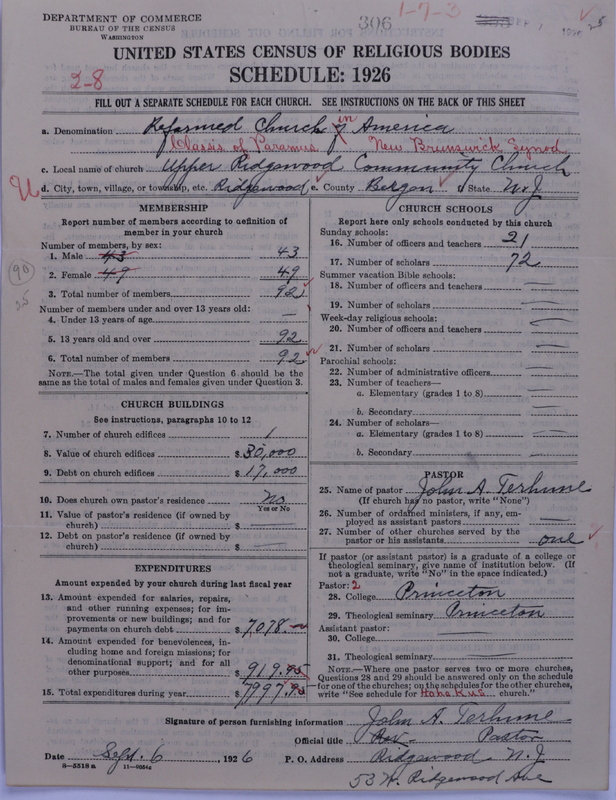 DEPARTMENT OF COMMERCE
BUREAU OF THE CENSUS
WASHINGTON
306
1-7-3
UNITED STATES CENSUS OF RELIGIOUS BODIES
SCHEDULE: 1926
2-8
FILL OUT A SEPARATE SCHEDULE FOR EACH CHURCH. SEE INSTRUCTIONS ON THE BACK OF THIS SHEET
a. Denomination Reformed Church in America
Classis of Paramus New Brunswick Synod
c. Local name of church Upper Ridgewood Community Church
U d. City, town, village, or township, etc. Ridgewood e. County Bergen State N.J
MEMBERSHIP
Report number of members according to definition of
member in your church
Number of members, by sex:
1. Male 43 43
2. Female 49 49
3. Total number of members 92
90
Number of members under and over 13 years old:
4. Under 13 years of age —
5. 13 years old and over 92
6. Total number of members 92
NOTE.—The total given under Question 6 should be the
same as the total of males and females given under Question 3.
CHURCH BUILDINGS
See instructions, paragraphs 10 to 12
7. Number of church edifices 1
8. Value of church edifices $30,000
9. Debt on church edifices $17,000
10. Does church own pastor's residence No
Yes or No
11. Value of pastor's residence (if owned by
church) $ —
12. Debt on pastor's residence (if owned by
church) $ —
EXPENDITURES
Amount expended by church during last fiscal year
13. Amount expended for salaries, repairs,
and other running expenses; for im-
provements or new buildings; and for
payments on church debt $7078.—
14. Amount expended for benevolences, in-
cluding home and foreign missions; for
denominational support; and for all
other purposes $919.95
15. Total expenditures during year $7997.95
CHURCH SCHOOLS
Report here only schools conducted by this church
Sunday schools:
16. Number of officers and teachers 21
17. Number of scholars 72
Summer vacation Bible schools:
18. Number of officers and teachers —
19. Number of scholars —
Week-day religious schools:
20. Number of officers and teachers —
21. Number of scholars —
Parochial schools:
22. Number of administrative officers —
23. Number of teachers—
a. Elementary (grades 1 to 8) —
b. Secondary —
24. Number of scholars—
a. Elementary (grades 1 to 8) —
b. Secondary —
PASTOR
25. Name of pastor John A. Terhune
(If church has no pastor, write "None")
26. Number of ordained ministers, if any, em-
ployed as assistant pastors —
27. Number of other churches served by the
pastor or his assistants one
If pastor (or assistant pastor) is a graduate of a college or
theological seminary, give name of institution below. (If
not a graduate, write "No" in the space indicated.)
Pastor: 2
28. College Princeton
29. Theological seminary Princeton
Assistant pastor:
30. College —
31. Theological seminary —
NOTE.—Where one pastor serves two or more churches,
Questions 28 and 29 should be answered only on the schedule
for one of the churches; on the schedules for the other churches,
write "See schedule for Hohokus church."
Signature of person furnishing information John A. Terhune
Official title Rev- Pastor
Date Sept. 6, 1926 P. O. Address Ridgewood N.J
8-5518a 11-9054a
53 N. Ridgewood Ave